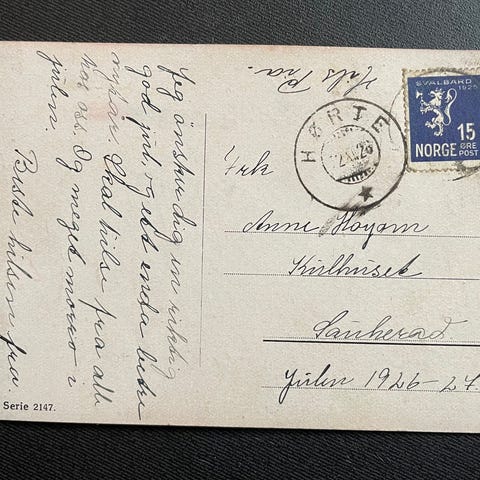 Jeg önsker dig en riktig
god jul, og ett enda bedre
nyår. Skal hilse fra alle
hos oss. Og meget moro i
julen.
Beste hilsen fra.
Serie 2147.
Hils Pra.
SVALBARD
1925
15
NORGE ØRE
POST
HØRTE
Frk
Anne Hoyam
Kulhuset
Sauherad.
Julen 1926-27.